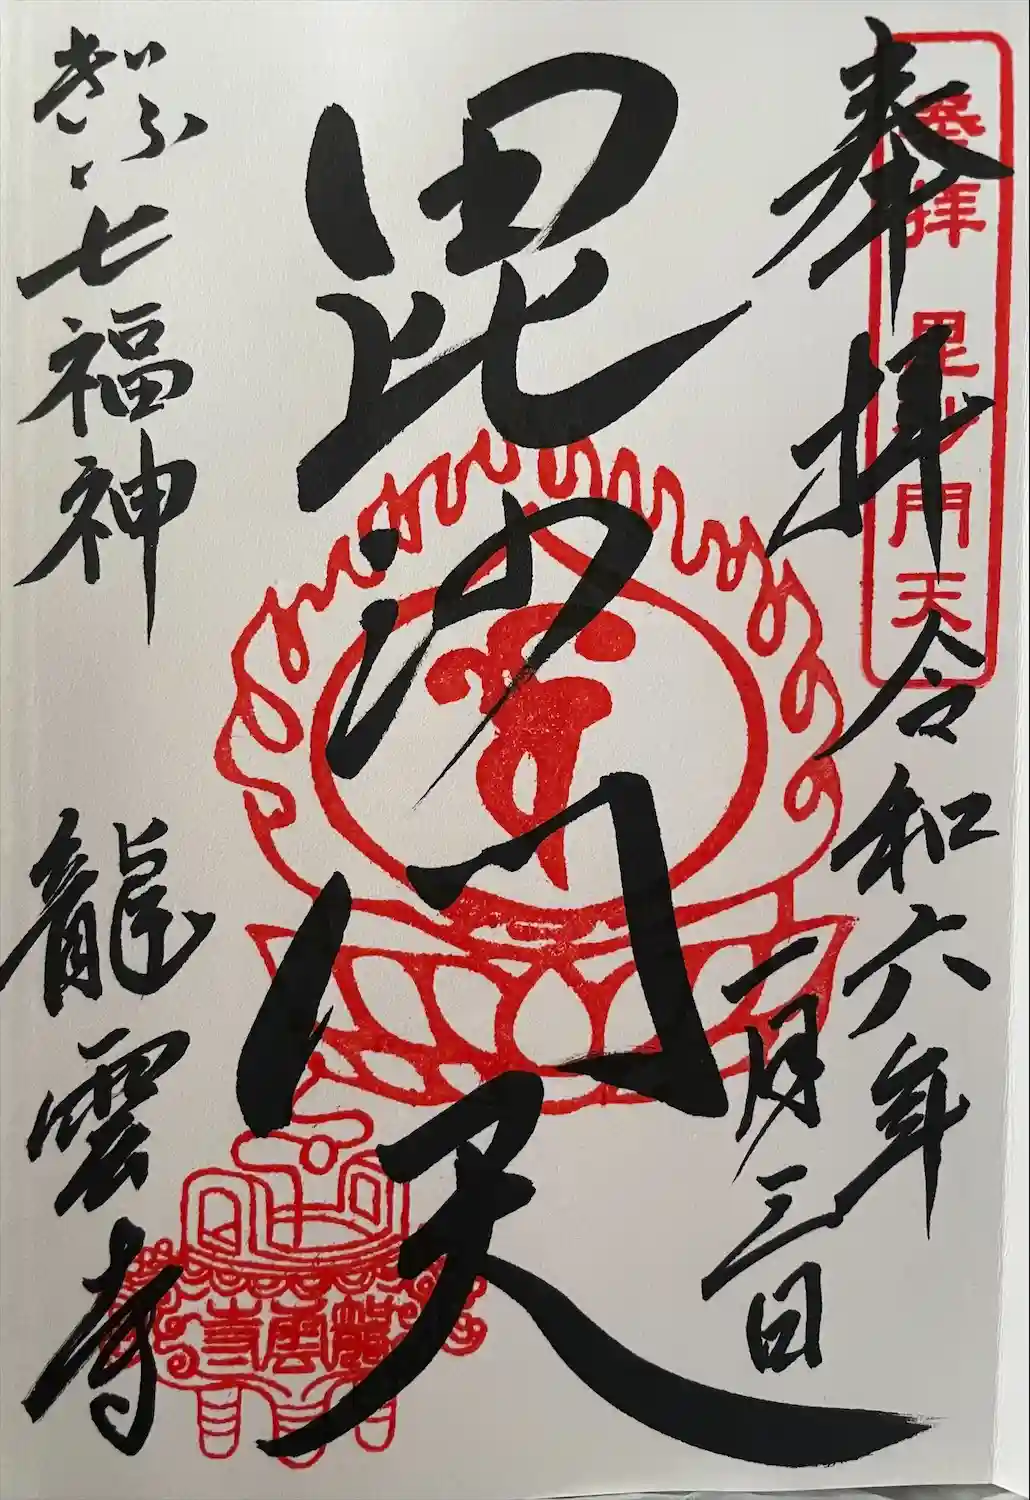 奉拝
令和六年
二月三日
拝 毘沙門天
毘沙門天
龍雲寺
ぎふ七福神
龍雲寺